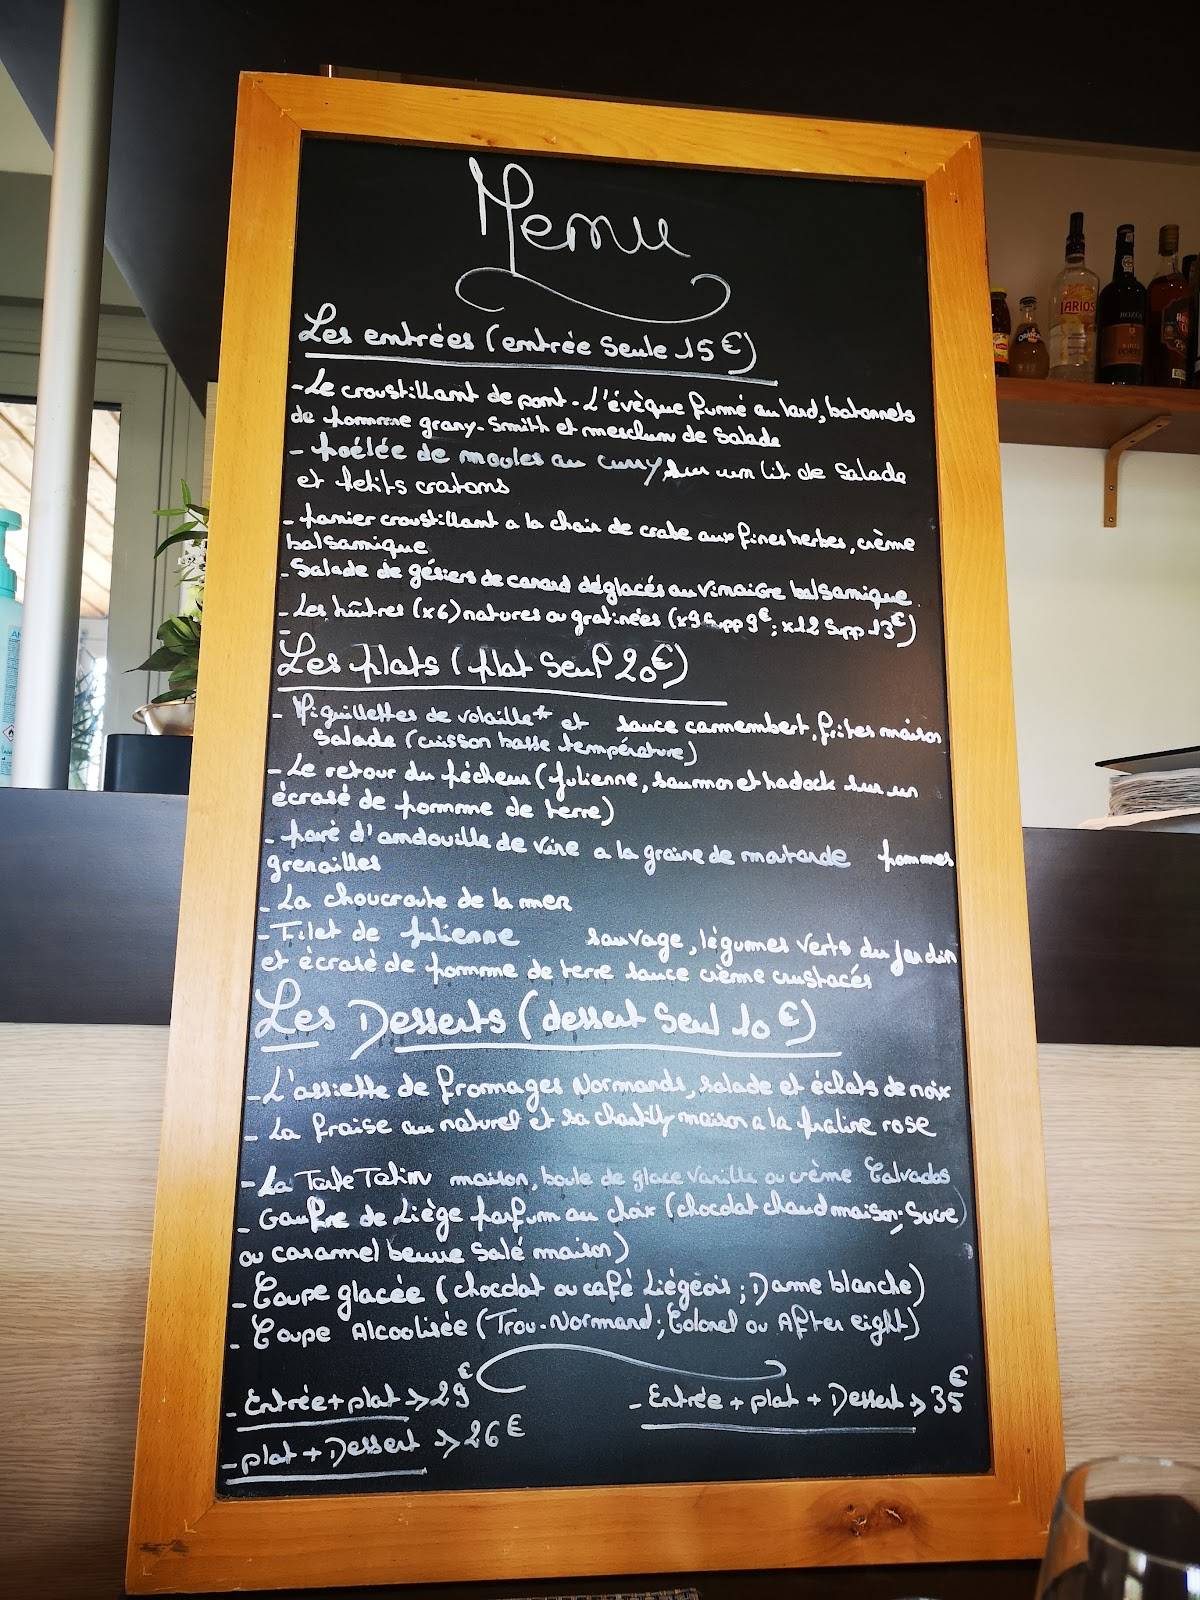 Menu
Les entrées (entrée seule 15€)
- Le croustillant de pont-L'évêque fumé au lard, batonnets
de pomme grany-smith et mesclum de salade
- poélée de moules au curry sur um lit de salade
et petits cratons
- panier croustillant a la chair de crabe aux fines herbes, crème
balsamique
- Salade de gésiers de canard déglacés au vinaigre balsamique.
- Les huîtres (x6) natures ou gratinées (x9 supp 9€; x12 supp 13€)
-
Les plats (plat seul 20€)
- Aiguillettes de volaille* et sauce camembert, frites maison
salade (cuisson basse température)
- Le retour du pécheur (julienne, saumon et hadock sur un
écrasé de pomme de terre)
- pavé d'andouille de vire a la graine de moutarde pommes
grenailles
- La choucroute de la mer
- Filet de julienne sauvage, légumes verts du jardin
et écrasé de pomme de terre sauce crème crustacés
Les Desserts (dessert seul 10€)
- L'assiette de fromages Normands, salade et éclats de noix
- La fraise au naturel et sa chantilly maison a la praline rose
- La Tarte Tatin maison, boule de glace vanille ou crème Calvados
- Gaufre de Liège parfum au choix (chocolat chaud maison; sucre)
ou caramel beurre salé maison)
- Coupe glacée (chocolat ou café Liégeois; Dame blanche)
- Coupe Alcoolisée (Trou-Normand; Colonel ou After eight)
- Entrée + plat => 29€
- Entrée + plat + Dessert => 35€
- plat + Dessert => 26€
LARIOS
ROZÈS